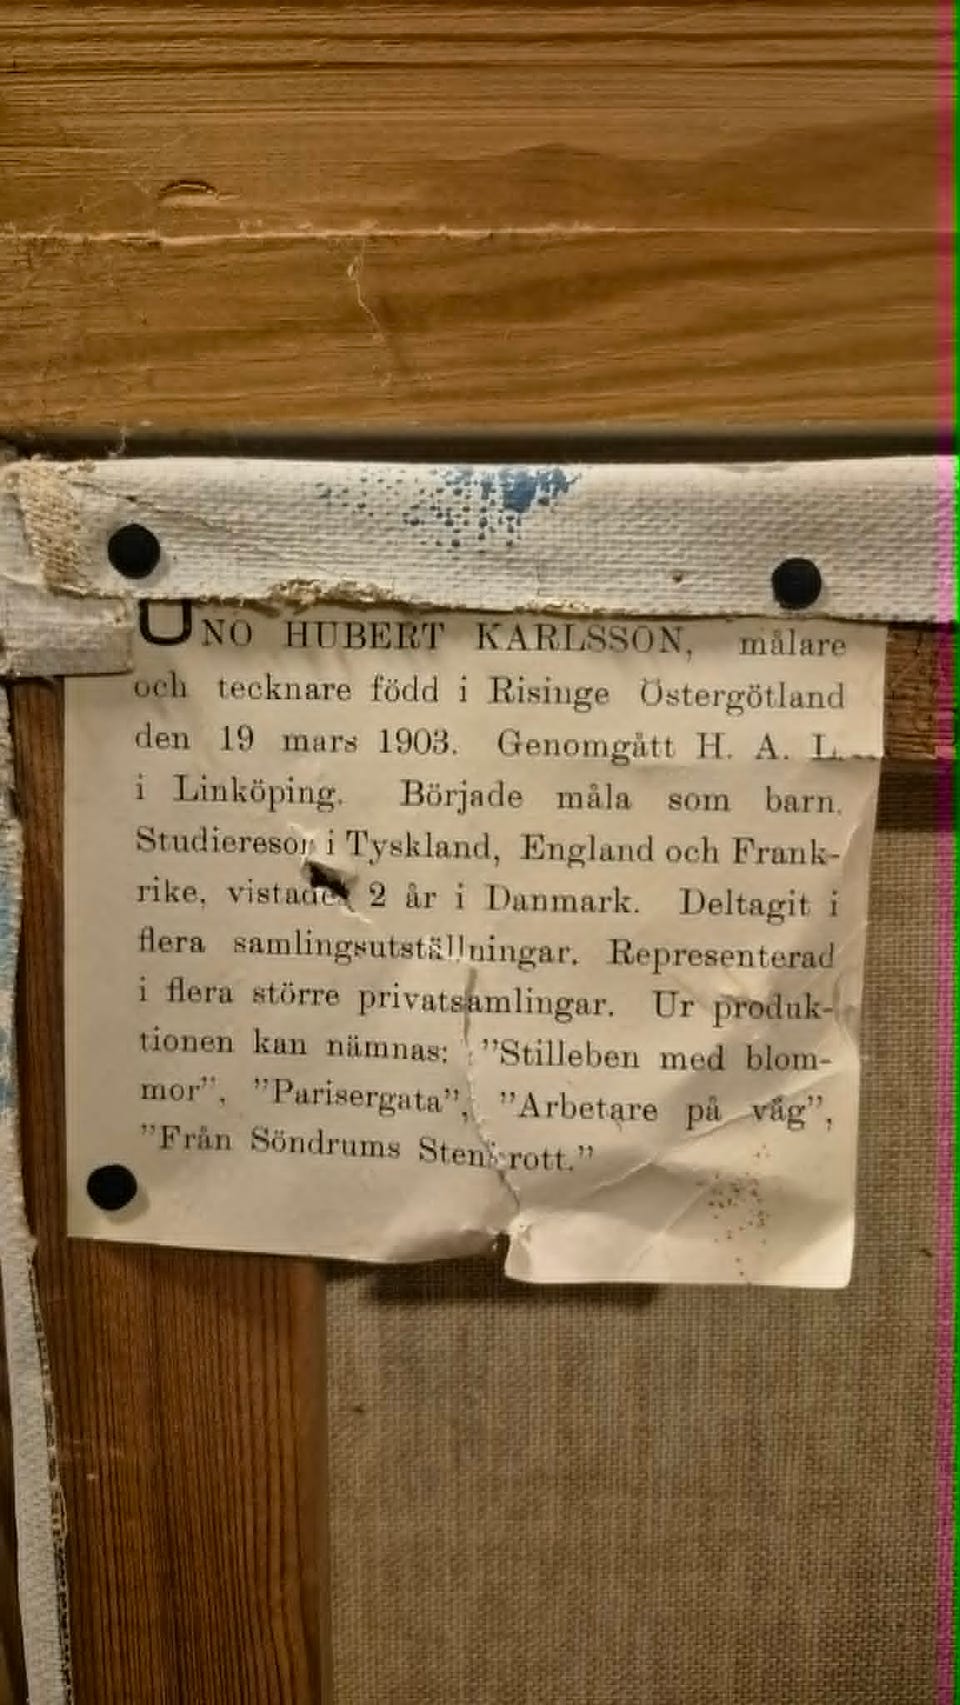 UNO HUBERT KARLSSON, målare
och tecknare född i Risinge Östergötland
den 19 mars 1903. Genomgått H. A. L.
i Linköping. Började måla som barn.
Studieresor i Tyskland, England och Frank-
rike, vistades 2 år i Danmark. Deltagit i
flera samlingsutställningar. Representerad
i flera större privatsamlingar. Ur produk-
tionen kan nämnas: "Stilleben med blom-
mor", "Parisergata", "Arbetare på väg",
"Från Söndrums Stenbrott."